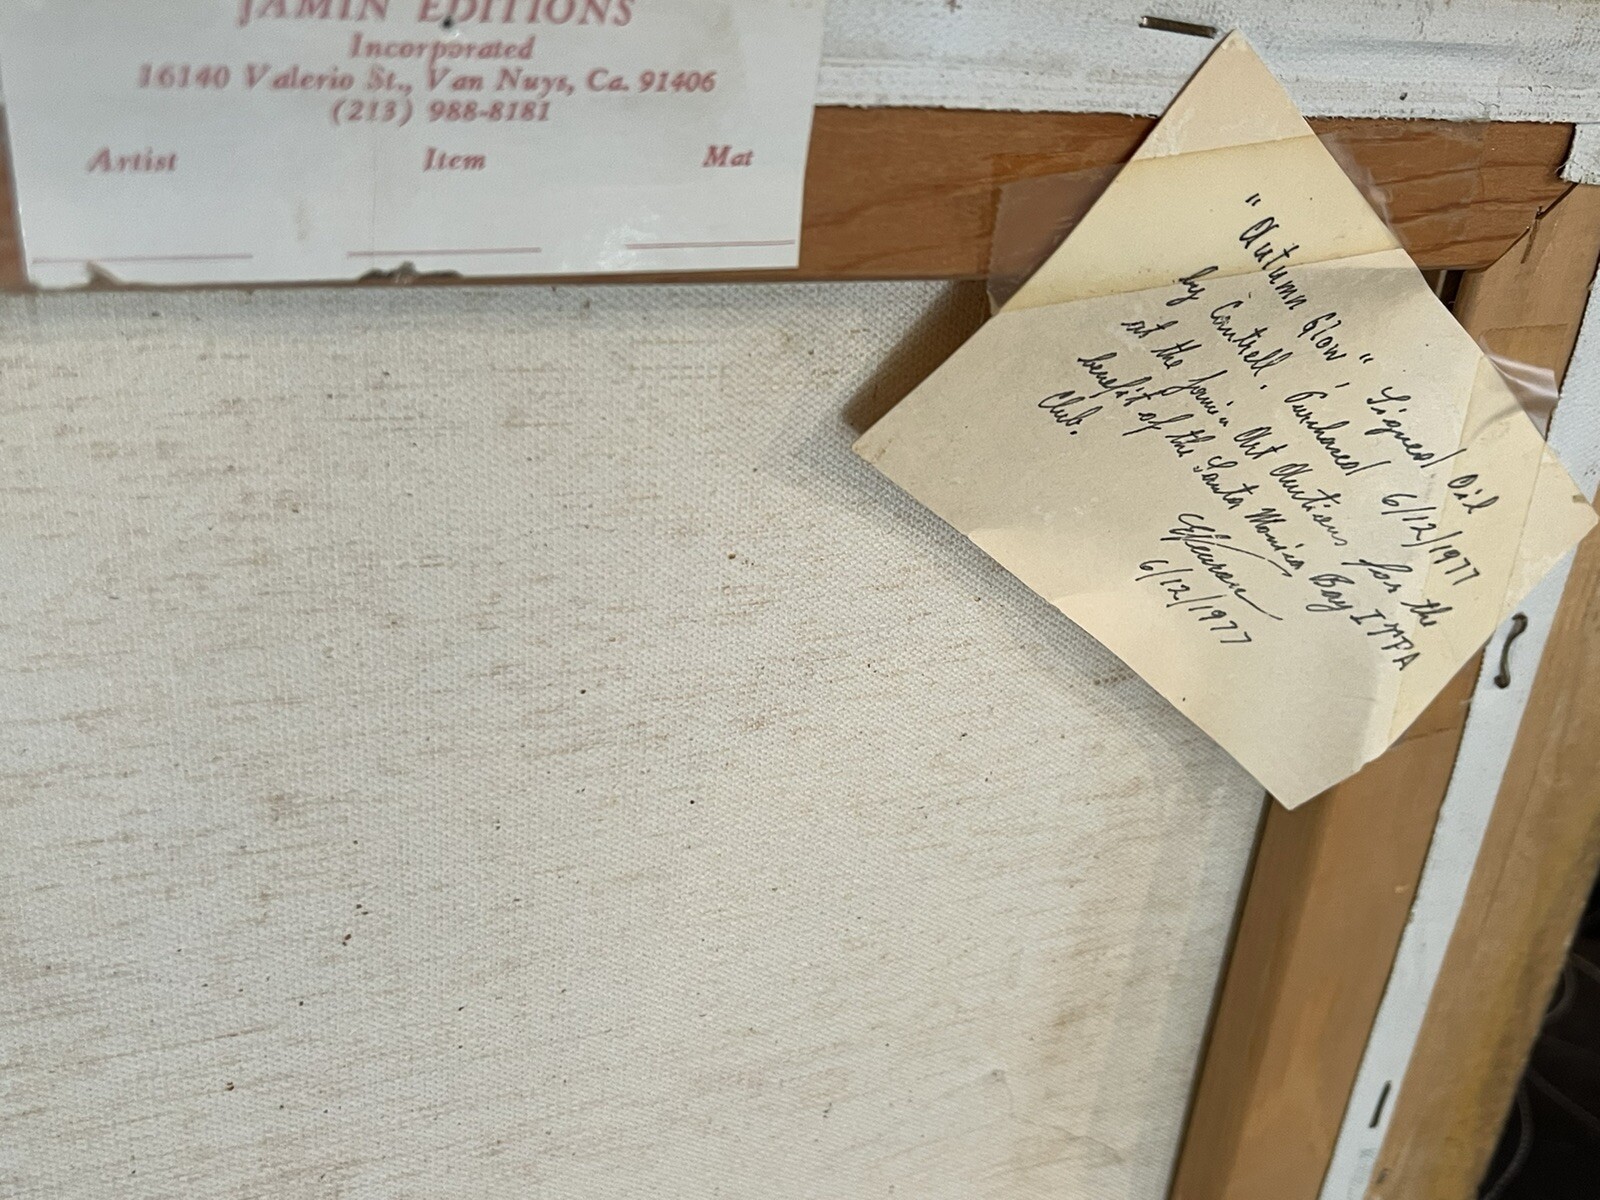 JAMIN EDITIONS
Incorporated
16140 Valerio St., Van Nuys, Ca. 91406
(213) 988-8181
Artist Item Mat
"Autumn Glow," Signed Oil
by Cantrell. Purchased 6/12/1977
at the Jamin Art Auctions for the
benefit of the Santa Monica Bay
Club.
6/12/1977